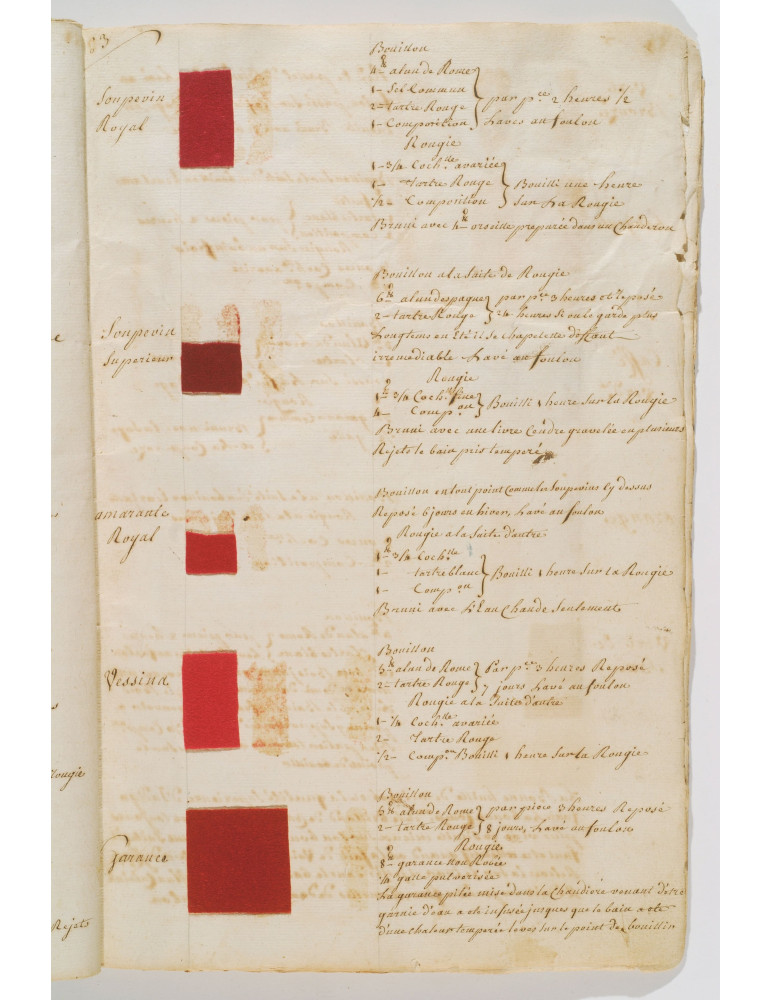 83
Soupevin
Royal
Bouillon
4 ℔ alun de Rome
1 - Sel Commun
2 - tartre Rouge
1 - Composition
par p.ce 2 heures 1/2
Lavés au foulon
Rougie
1 - 3/4 Coch.lle avariée
1 - tartre Rouge
1/2 - Composition
Bouilli une heure
Sur La Rougie
Bruni avec 4 ℔ orseille preparée dans un Chauderon
Soupevin
Superieur
Bouillon a la Suite de Rougie
6 ℔ alun despagne
2 - tartre Rouge
par p.ce 3 heures et Reposé
24 heures Si on le garde plus
Longtems en Eté il se chapelette deffaut
irremediable Lavé au foulon
Rougie
1 ℔ 3/4 Coch.lle fine
4 - Comp.on
Bouilli 1 heure Sur la Rougie
Bruni avec une livre Cendre gravelée en plusieurs
Rejets le bain pris temperé
amarante
Royal
Bouillon en tout point Comme les Soupevins Cy dessus
Reposé 6 jours en hiver, Lavé au foulon
Rougie a la Suite d'autre
1 ℔ 3/4 Coch.lle
1 - tartre blanc
1 - Comp.on
Bouilli 1 heure Sur La Rougie
Bruni avec L'Eau Chaude Seulement
Vessina
Bouillon
5 ℔ alun de Rome
2 - tartre Rouge
Par p.ce 3 heures Reposé
7 jours Lavé au foulon
Rougie a la Suite d'autre
1 - 1/4 Coch.lle avariée
2 - Tartre Rouge
1/2 - Comp.on Bouilli 1 heure Sur la Rougie
Garance
Bouillon
5 ℔ alun de Rome
2 - tartre Rouge
par piece 3 heures Reposé
8 jours, Lavé au foulon
Rougie
8 ℔ garance non Robée
1/4 galle pulverisée
La garance pilée mise dans la Chaudiere venant d'etre
garnie d'eau a eté infusée jusques que le bain a eté
d'une chaleur temperée levés sur le point de bouillir
rougie
Rejets